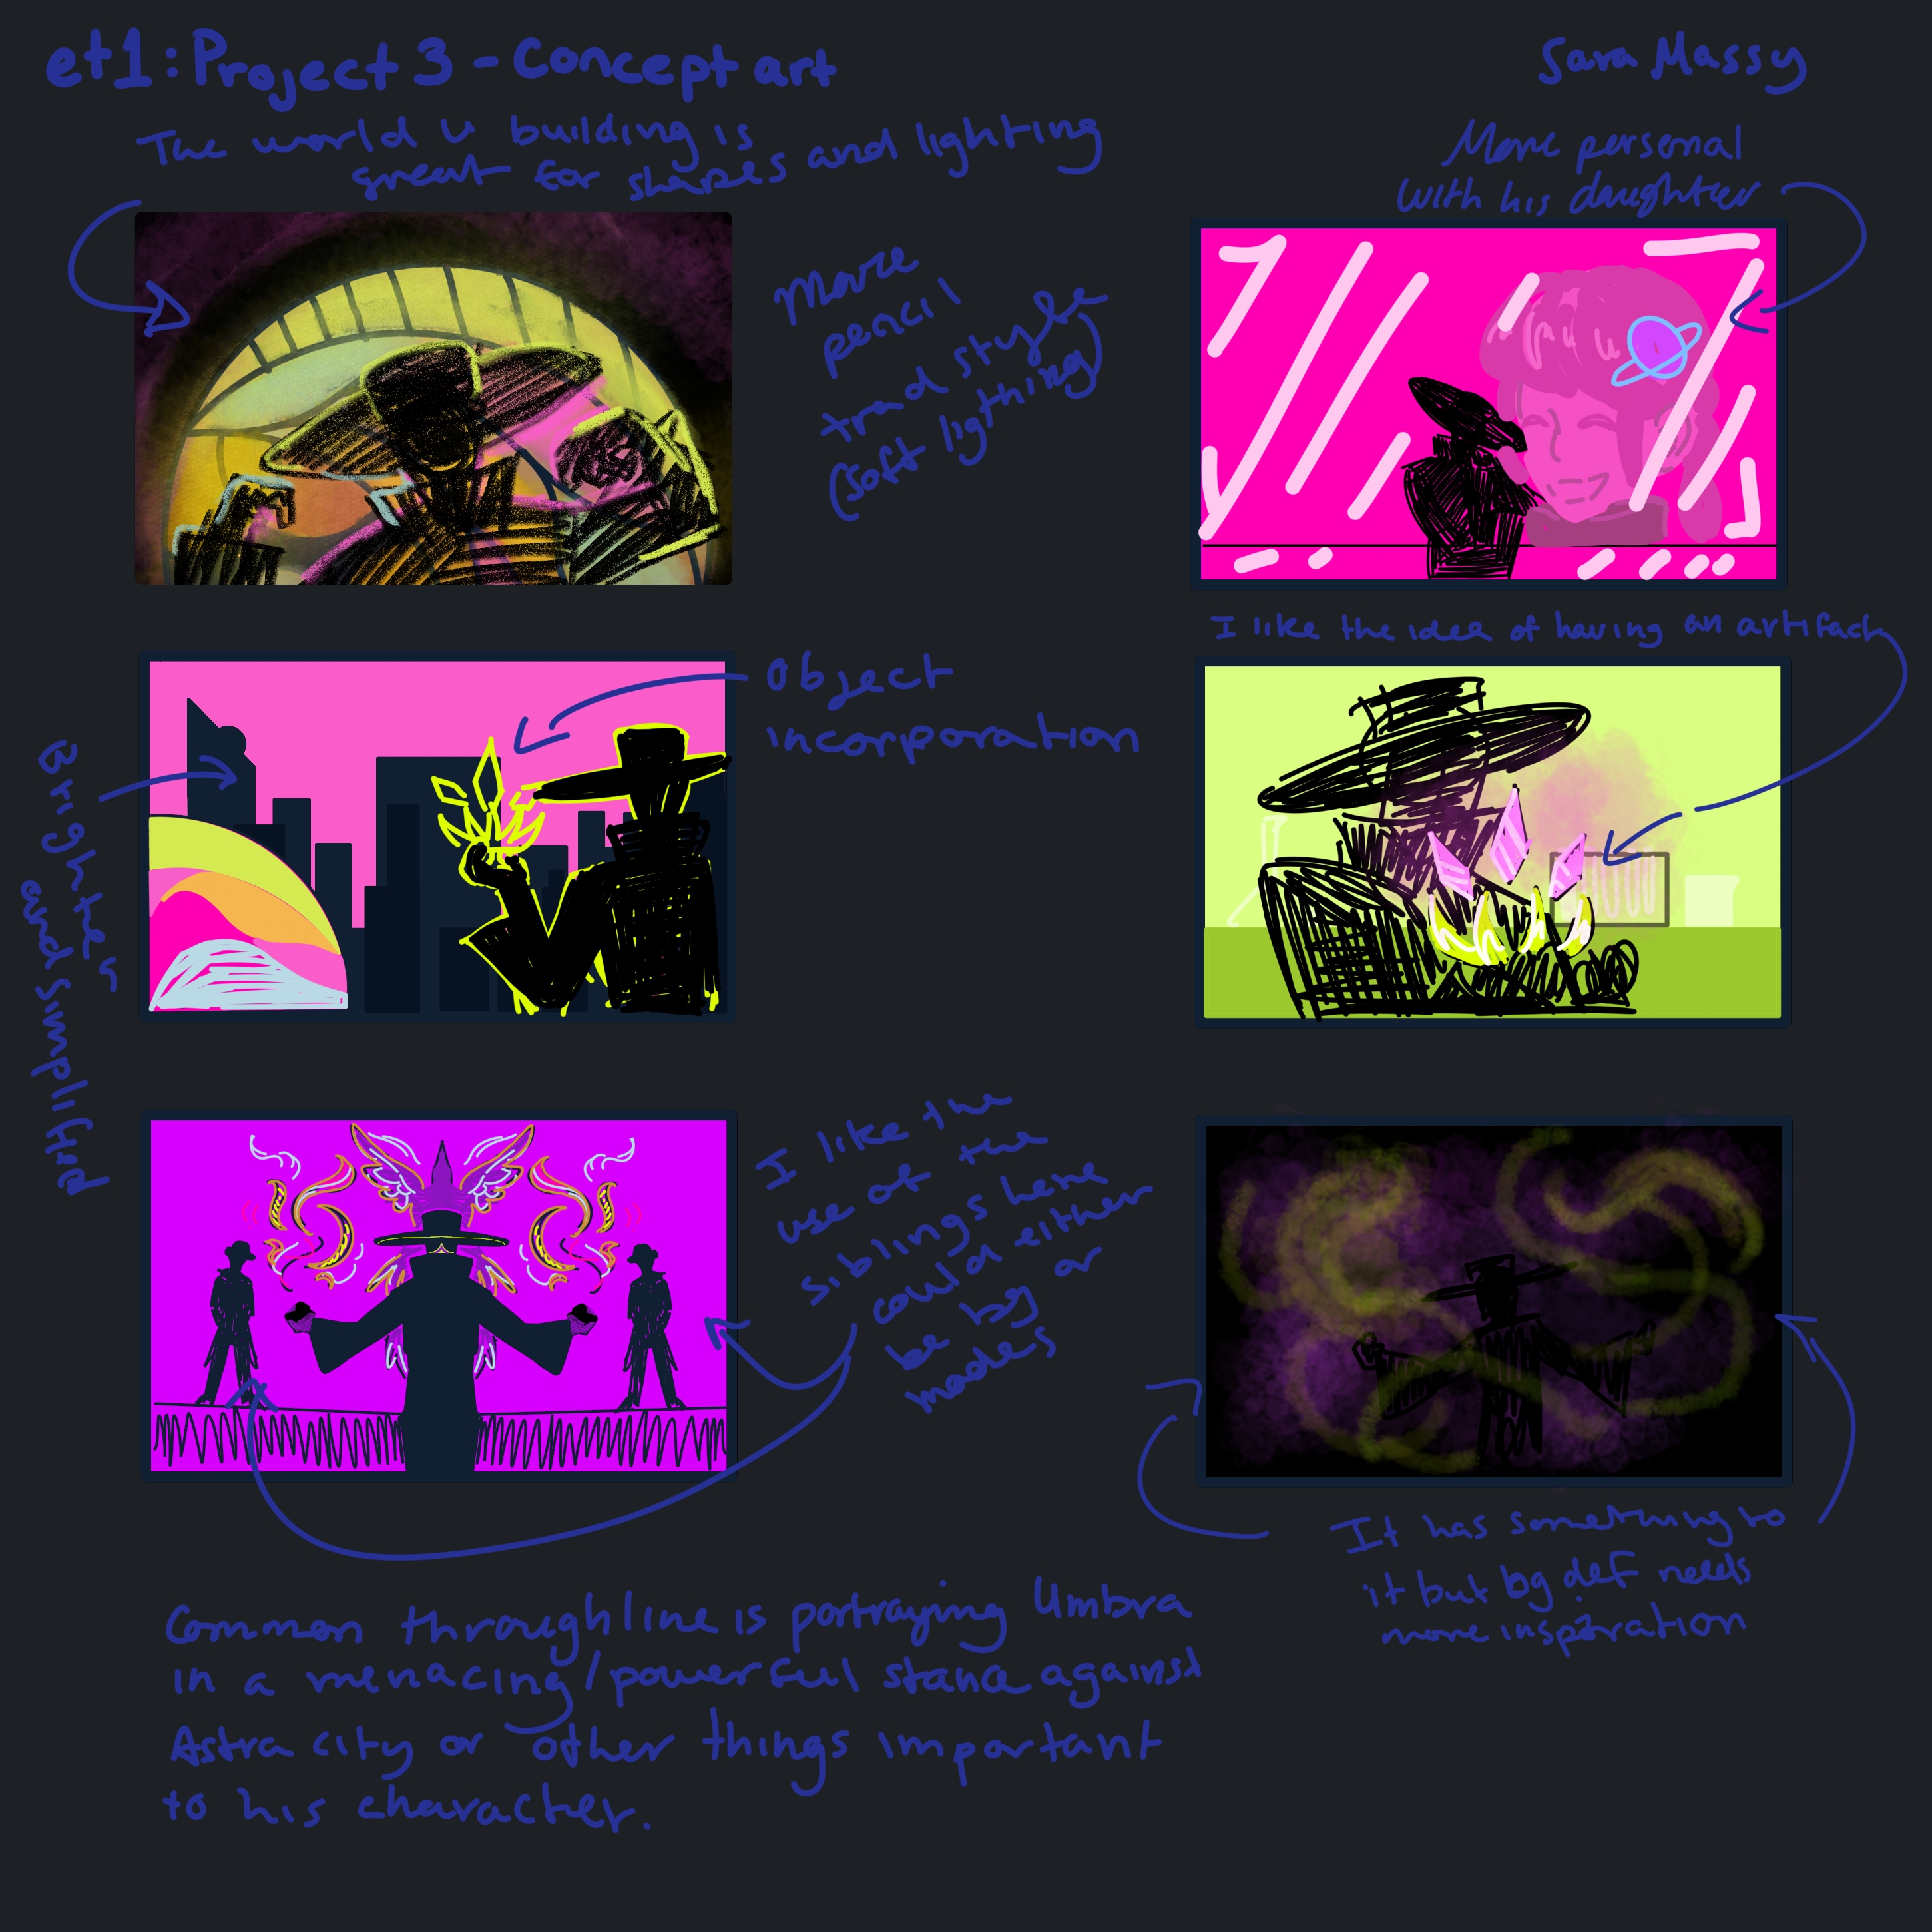 et1: Project 3 - Concept art
Sara Massy
The world u building is
great for shapes and lighting
More personal
with his daughter
More
pencil
trad style
(soft ligthing)
I like the idea of having an artifact
Object
incorporation
Brighter
and simplified
I like the
use of the
siblings here
could either
be bg or
models
It has something to
it but bg def needs
more inspiration
Common throughline is portraying Umbra
in a menacing/powerful stance against
Astra city or other things important
to his character.